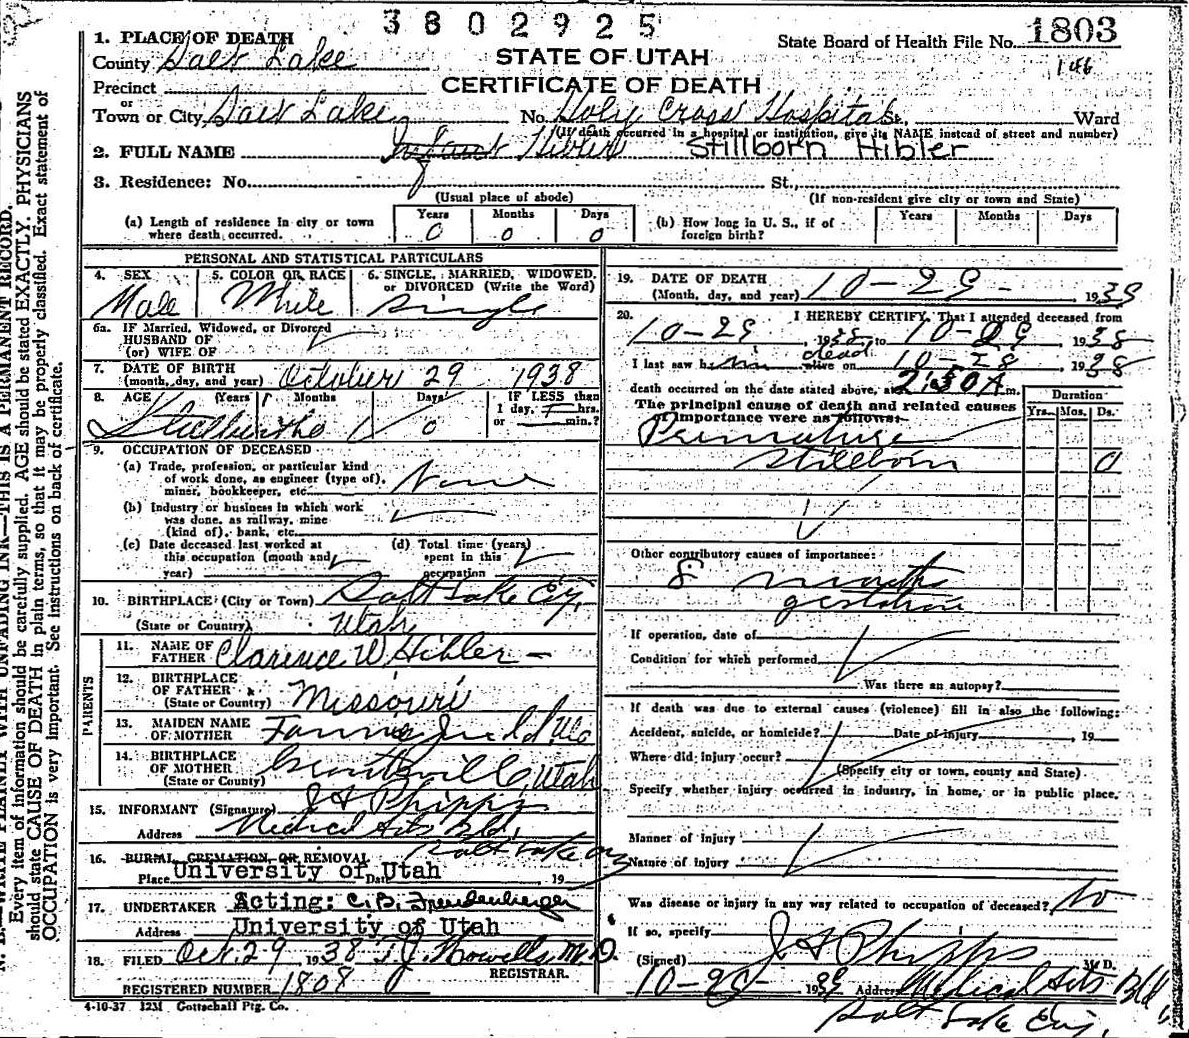 3802925
1. PLACE OF DEATH
County Salt Lake
STATE OF UTAH
State Board of Health File No. 1803
146
Precinct
CERTIFICATE OF DEATH
or
Town or City Salt Lake No. Holy Cross Hospital St., Ward
(If death occurred in a hospital or institution, give its NAME instead of street and number)
2. FULL NAME Infant Hibler Stillborn Hibler
3. Residence: No. St.,
(Usual place of abode) (If non-resident give city or town and State)
(a) Length of residence in city or town where death occurred. Years 0 Months 0 Days 0
(b) How long in U. S., if of foreign birth? Years Months Days
PERSONAL AND STATISTICAL PARTICULARS
4. SEX Male
5. COLOR OR RACE White
6. SINGLE, MARRIED, WIDOWED, or DIVORCED (Write the Word) Single
6a. IF Married, Widowed, or Divorced
HUSBAND OF
(or) WIFE OF
7. DATE OF BIRTH
(month, day, and year) October 29 1938
8. AGE Years Months Days 0 IF LESS than
1 day, hrs.
or min.?
9. OCCUPATION OF DECEASED
(a) Trade, profession, or particular kind
of work done, as engineer (type of),
miner, bookkeeper, etc. None
(b) Industry or business in which work
was done, as railway, mine
(kind of), bank, etc.
(c) Date deceased last worked at
this occupation (month and
year)
(d) Total time (years)
spent in this
occupation
10. BIRTHPLACE (City or Town) Salt Lake City,
(State or Country) Utah
PARENTS
11. NAME OF
FATHER Clarence W Hibler
12. BIRTHPLACE
OF FATHER
(State or Country) Missouri
13. MAIDEN NAME
OF MOTHER
14. BIRTHPLACE
OF MOTHER
(State or Country) Utah
15. INFORMANT (Signature) J A Phipps
Address Medical Arts Bld,
Salt Lake City
16. BURIAL, CREMATION, OR REMOVAL
Place University of Utah Date , 19
17. UNDERTAKER Acting: C.B. Freudenberger
Address University of Utah
18. FILED Oct. 29 1938 T.J. Howells, M.D.
REGISTRAR.
REGISTERED NUMBER 1808
4-10-37 12M Gottschall Ptg. Co.
19. DATE OF DEATH
(Month, day, and year) 10-29- 1938
20. I HEREBY CERTIFY, That I attended deceased from
10-29, 1938, to 10-29 1938
I last saw him dead alive on 10-28 1938
death occurred on the date stated above, at 2:50 A m.
The principal cause of death and related causes
of importance were as follows:
Duration
Yrs. Mos. Ds.
Premature
Stillborn 0
Other contributory causes of importance:
8 months
gestation
If operation, date of
Condition for which performed
Was there an autopsy?
If death was due to external causes (violence) fill in also the following:
Accident, suicide, or homicide? Date of injury , 19
Where did injury occur?
(Specify city or town, county and State)
Specify whether injury occurred in industry, in home, or in public place.
Manner of injury
Nature of injury
Was disease or injury in any way related to occupation of deceased? No
If so, specify
(Signed) J A Phipps M. D.
Address Medical Arts Bld,
Salt Lake City,
Every item of information should be carefully supplied. AGE should be stated EXACTLY. PHYSICIANS
should state CAUSE OF DEATH in plain terms, so that it may be properly classified. Exact statement of
OCCUPATION is very important. See instructions on back of certificate.